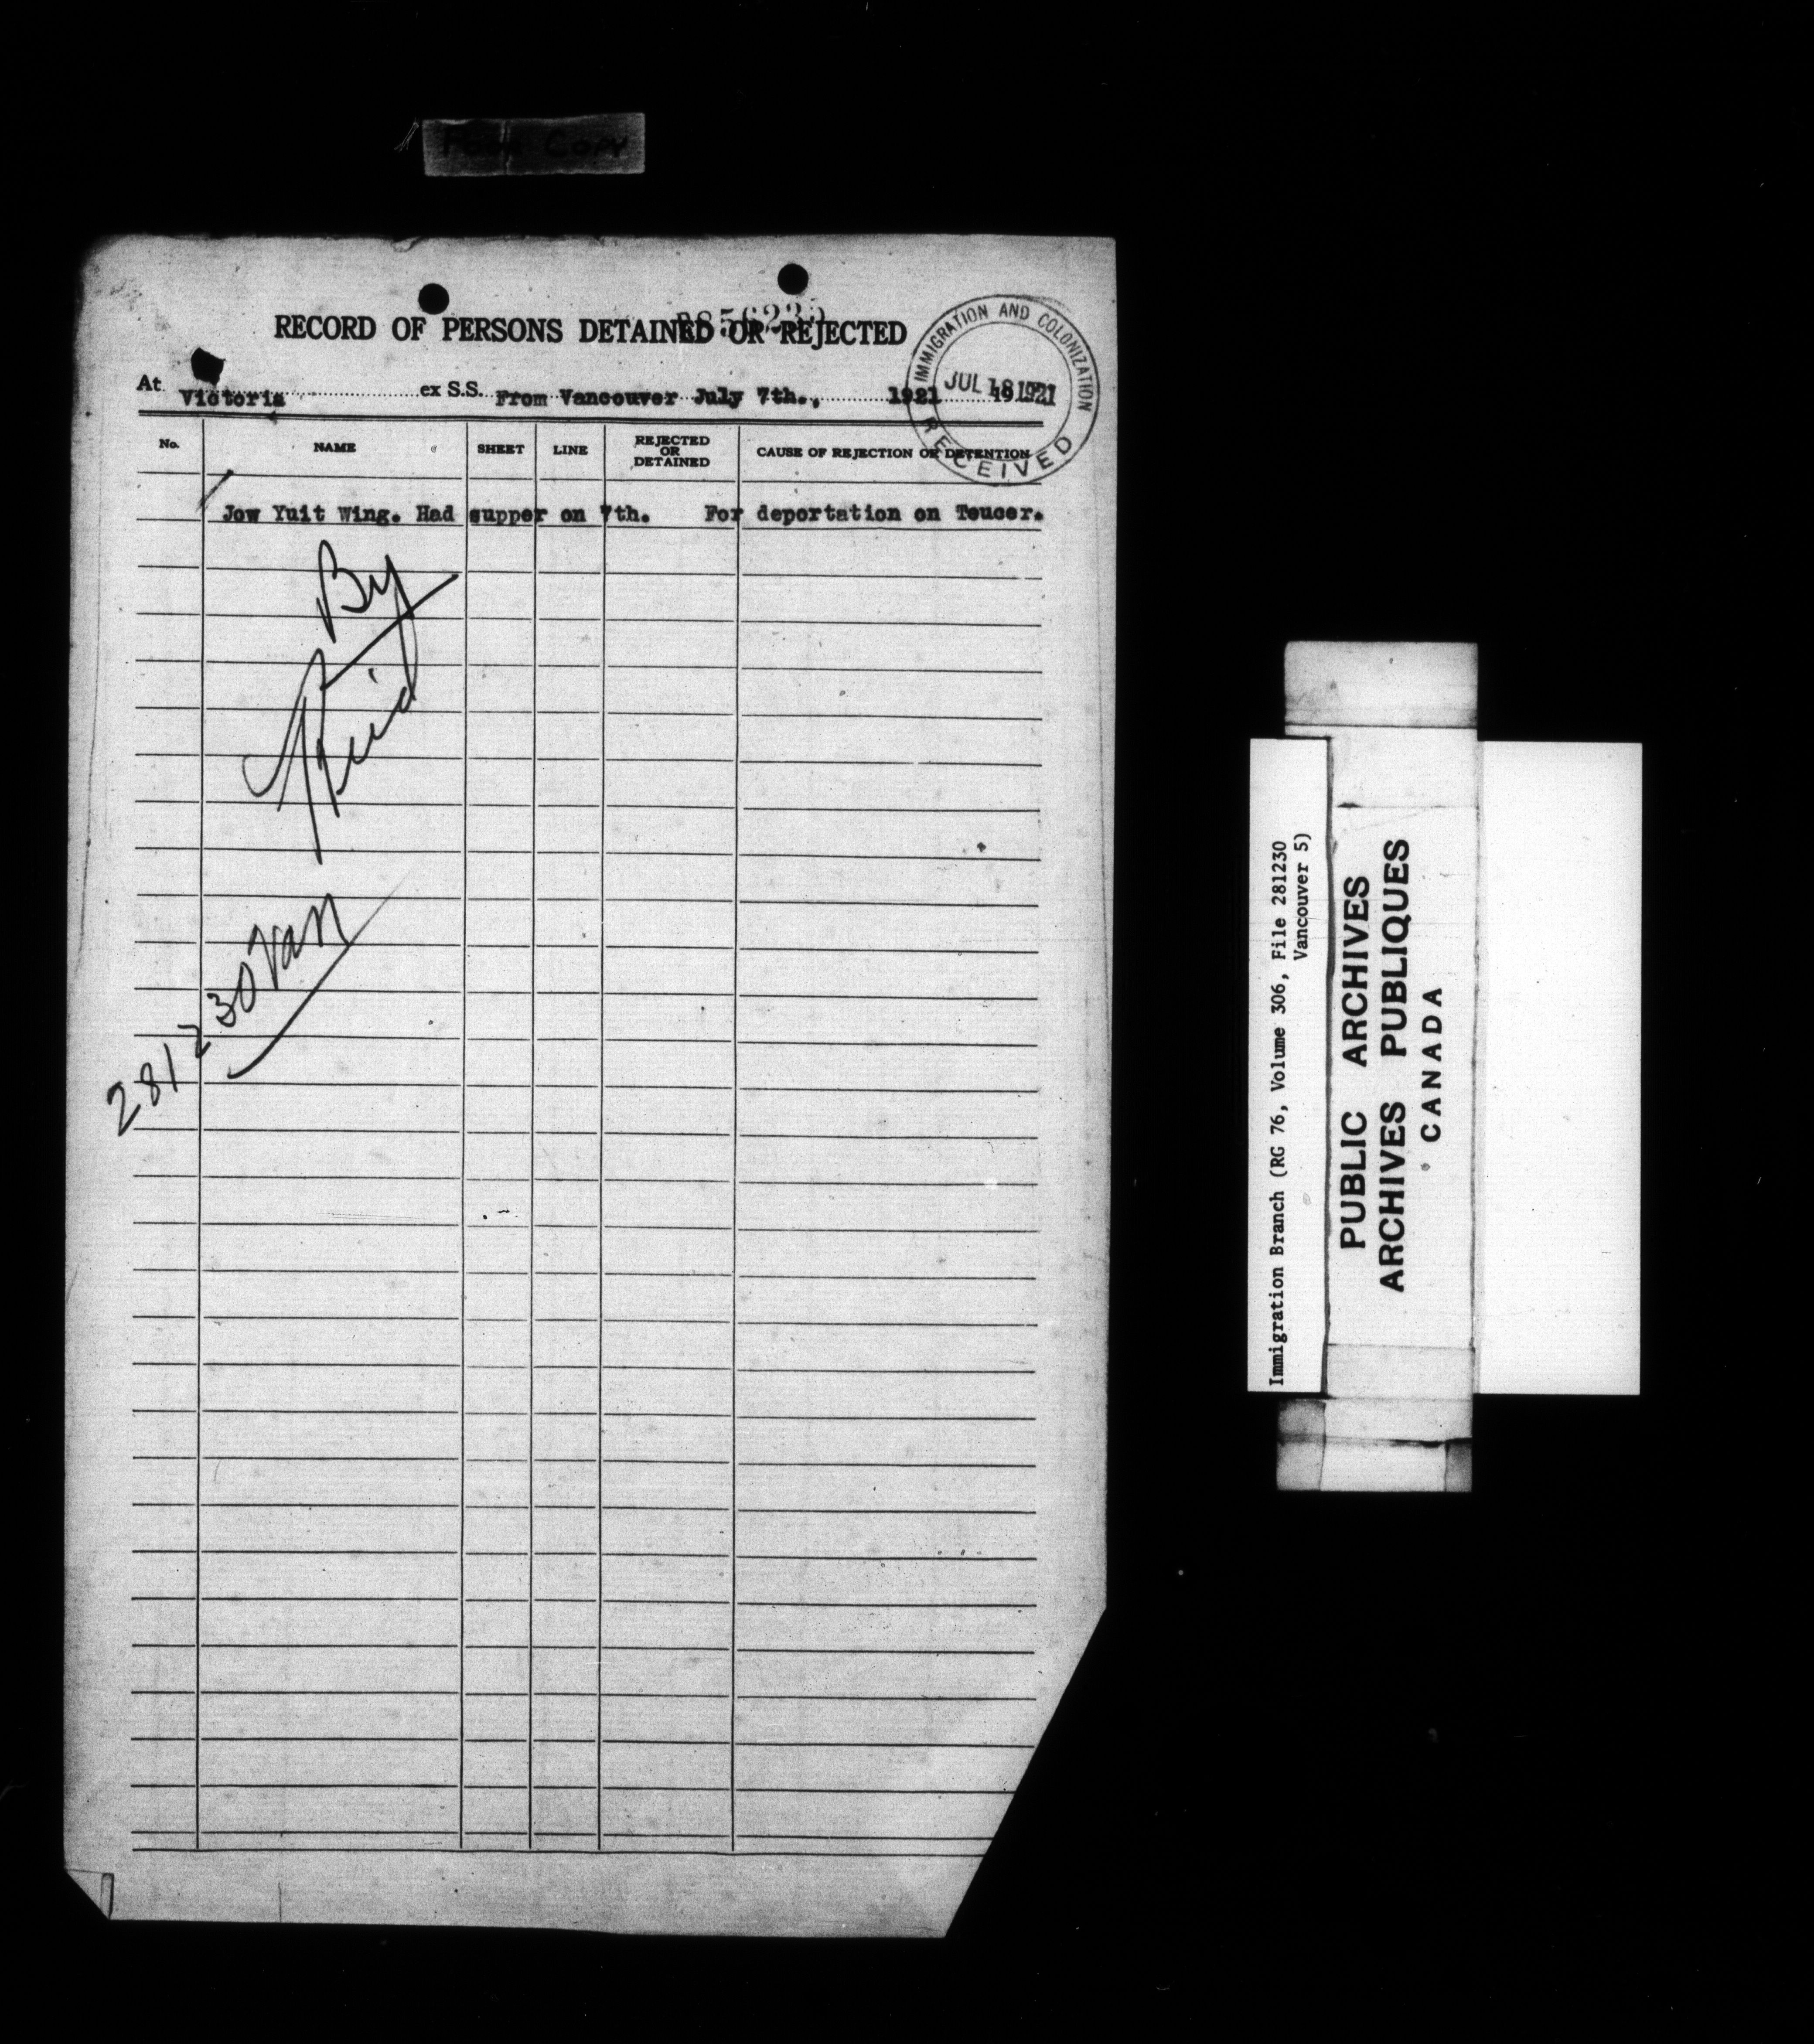 Poor Copy
RECORD OF PERSONS DETAINED OR REJECTED
At Victoria ex S.S. From Vancouver July 7th., 1921 19
IMMIGRATION AND COLONIZATION
JUL 18 1921
RECEIVED
No. NAME SHEET LINE REJECTED OR DETAINED CAUSE OF REJECTION OR DETENTION
Jow Yuit Wing. Had supper on 7th. For deportation on Teucer.
By
Reid
281230 Van
Immigration Branch (RG 76, Volume 306, File 281230
Vancouver 5)
PUBLIC ARCHIVES
ARCHIVES PUBLIQUES
CANADA